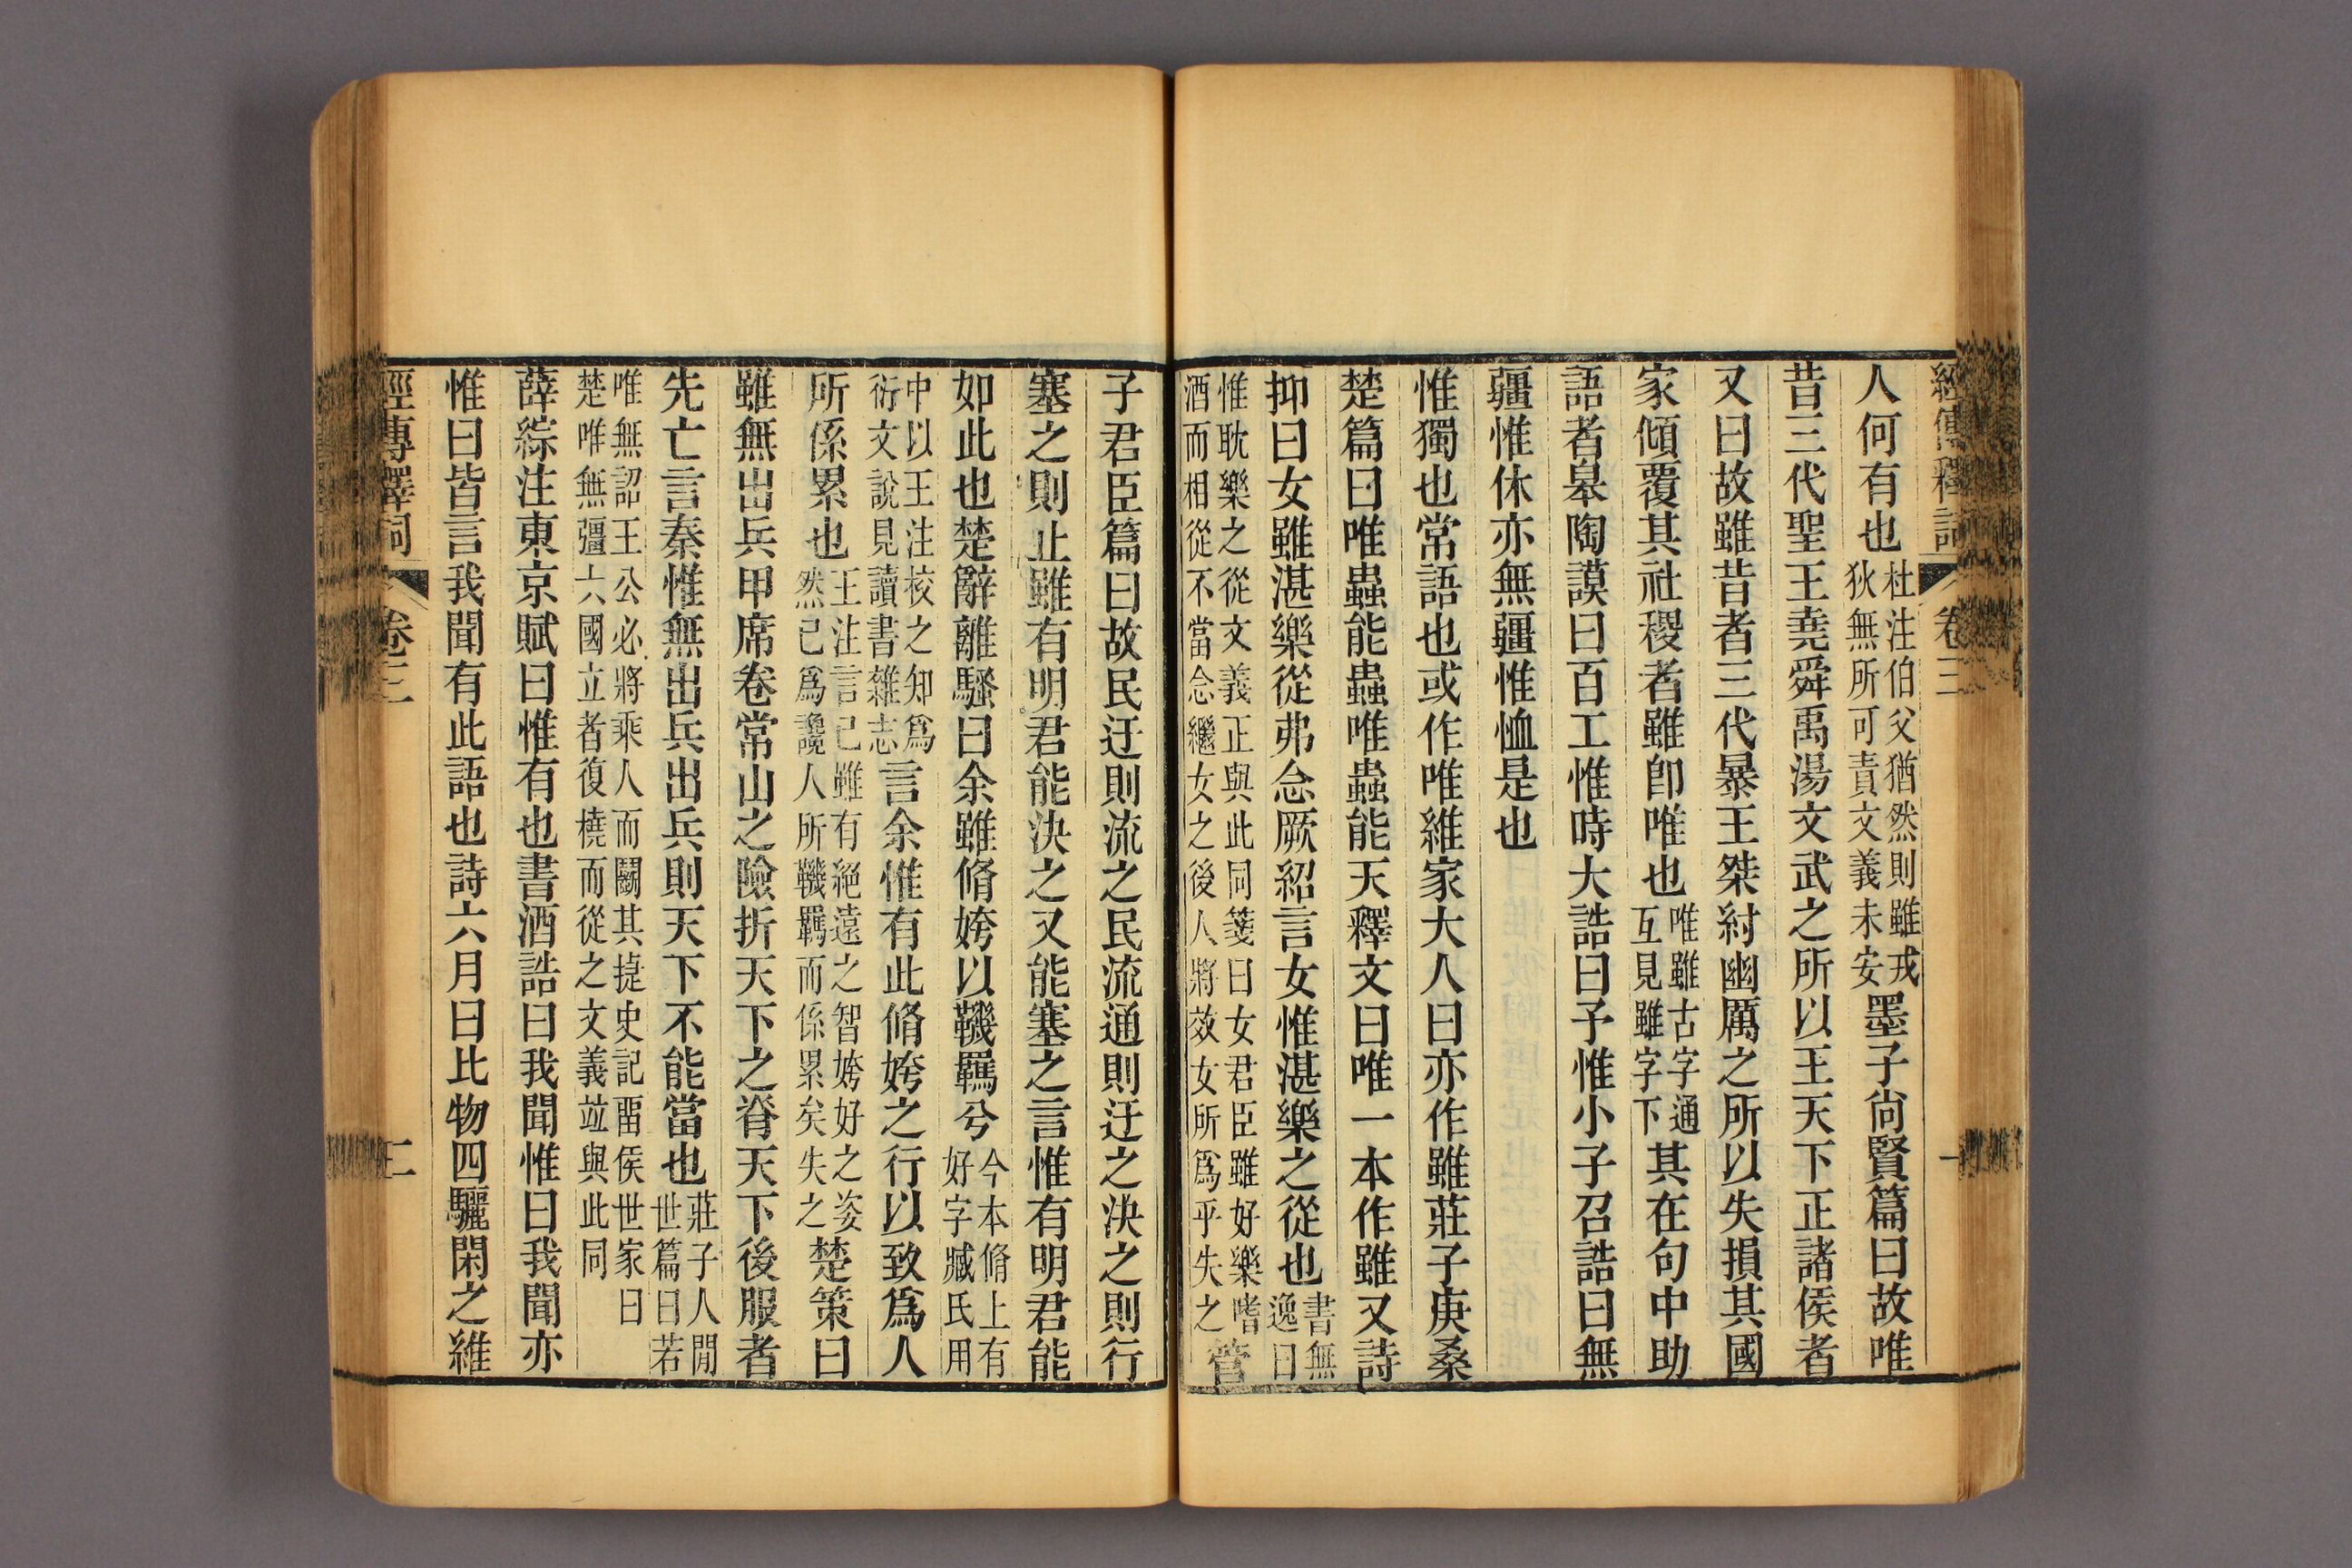 經傳釋詞 卷三 一
人何有也杜注伯父猶然則雖戎狄無所可責文義未安墨子尙賢篇曰故唯
昔三代聖王堯舜禹湯文武之所以王天下正諸侯者
又曰故雖昔者三代暴王桀紂幽厲之所以失損其國
家傾覆其社稷者雖卽唯也唯雖古字通互見雖字下其在句中助
語者皋陶謨曰百工惟時大誥曰予惟小子召誥曰無
疆惟休亦無疆惟恤是也
惟獨也常語也或作唯維家大人曰亦作雖莊子庚桑
楚篇曰唯蟲能蟲唯蟲能天釋文曰唯一本作雖又詩
抑曰女雖湛樂從弗念厥紹言女惟湛樂之從也書無逸曰
惟耽樂之從文義正與此同箋曰女君臣雖好樂嗜酒而相從不當念繼女之後人將效女所爲乎失之管
子君臣篇曰故民迂則流之民流通則迂之決之則行
塞之則止雖有明君能決之又能塞之言惟有明君能
如此也楚辭離騷曰余雖脩姱以鞿羈兮今本脩上有好字臧氏用
中以王注校之知爲衍文說見讀書雜志言余惟有此脩姱之行以致爲人
所係累也王注言己雖有絕遠之智姱好之姿然已爲讒人所鞿羈而係累矣失之楚策曰
雖無出兵甲席卷常山之險折天下之脊天下後服者
先亡言秦惟無出兵出兵則天下不能當也莊子人閒世篇曰若
唯無詔王公必將乘人而鬭其捷史記畱侯世家曰楚唯無彊六國立者復橈而從之文義竝與此同
薛綜注東京賦曰惟有也書酒誥曰我聞惟曰我聞亦
惟曰皆言我聞有此語也詩六月曰比物四驪閑之維
經傳釋詞 卷三 二